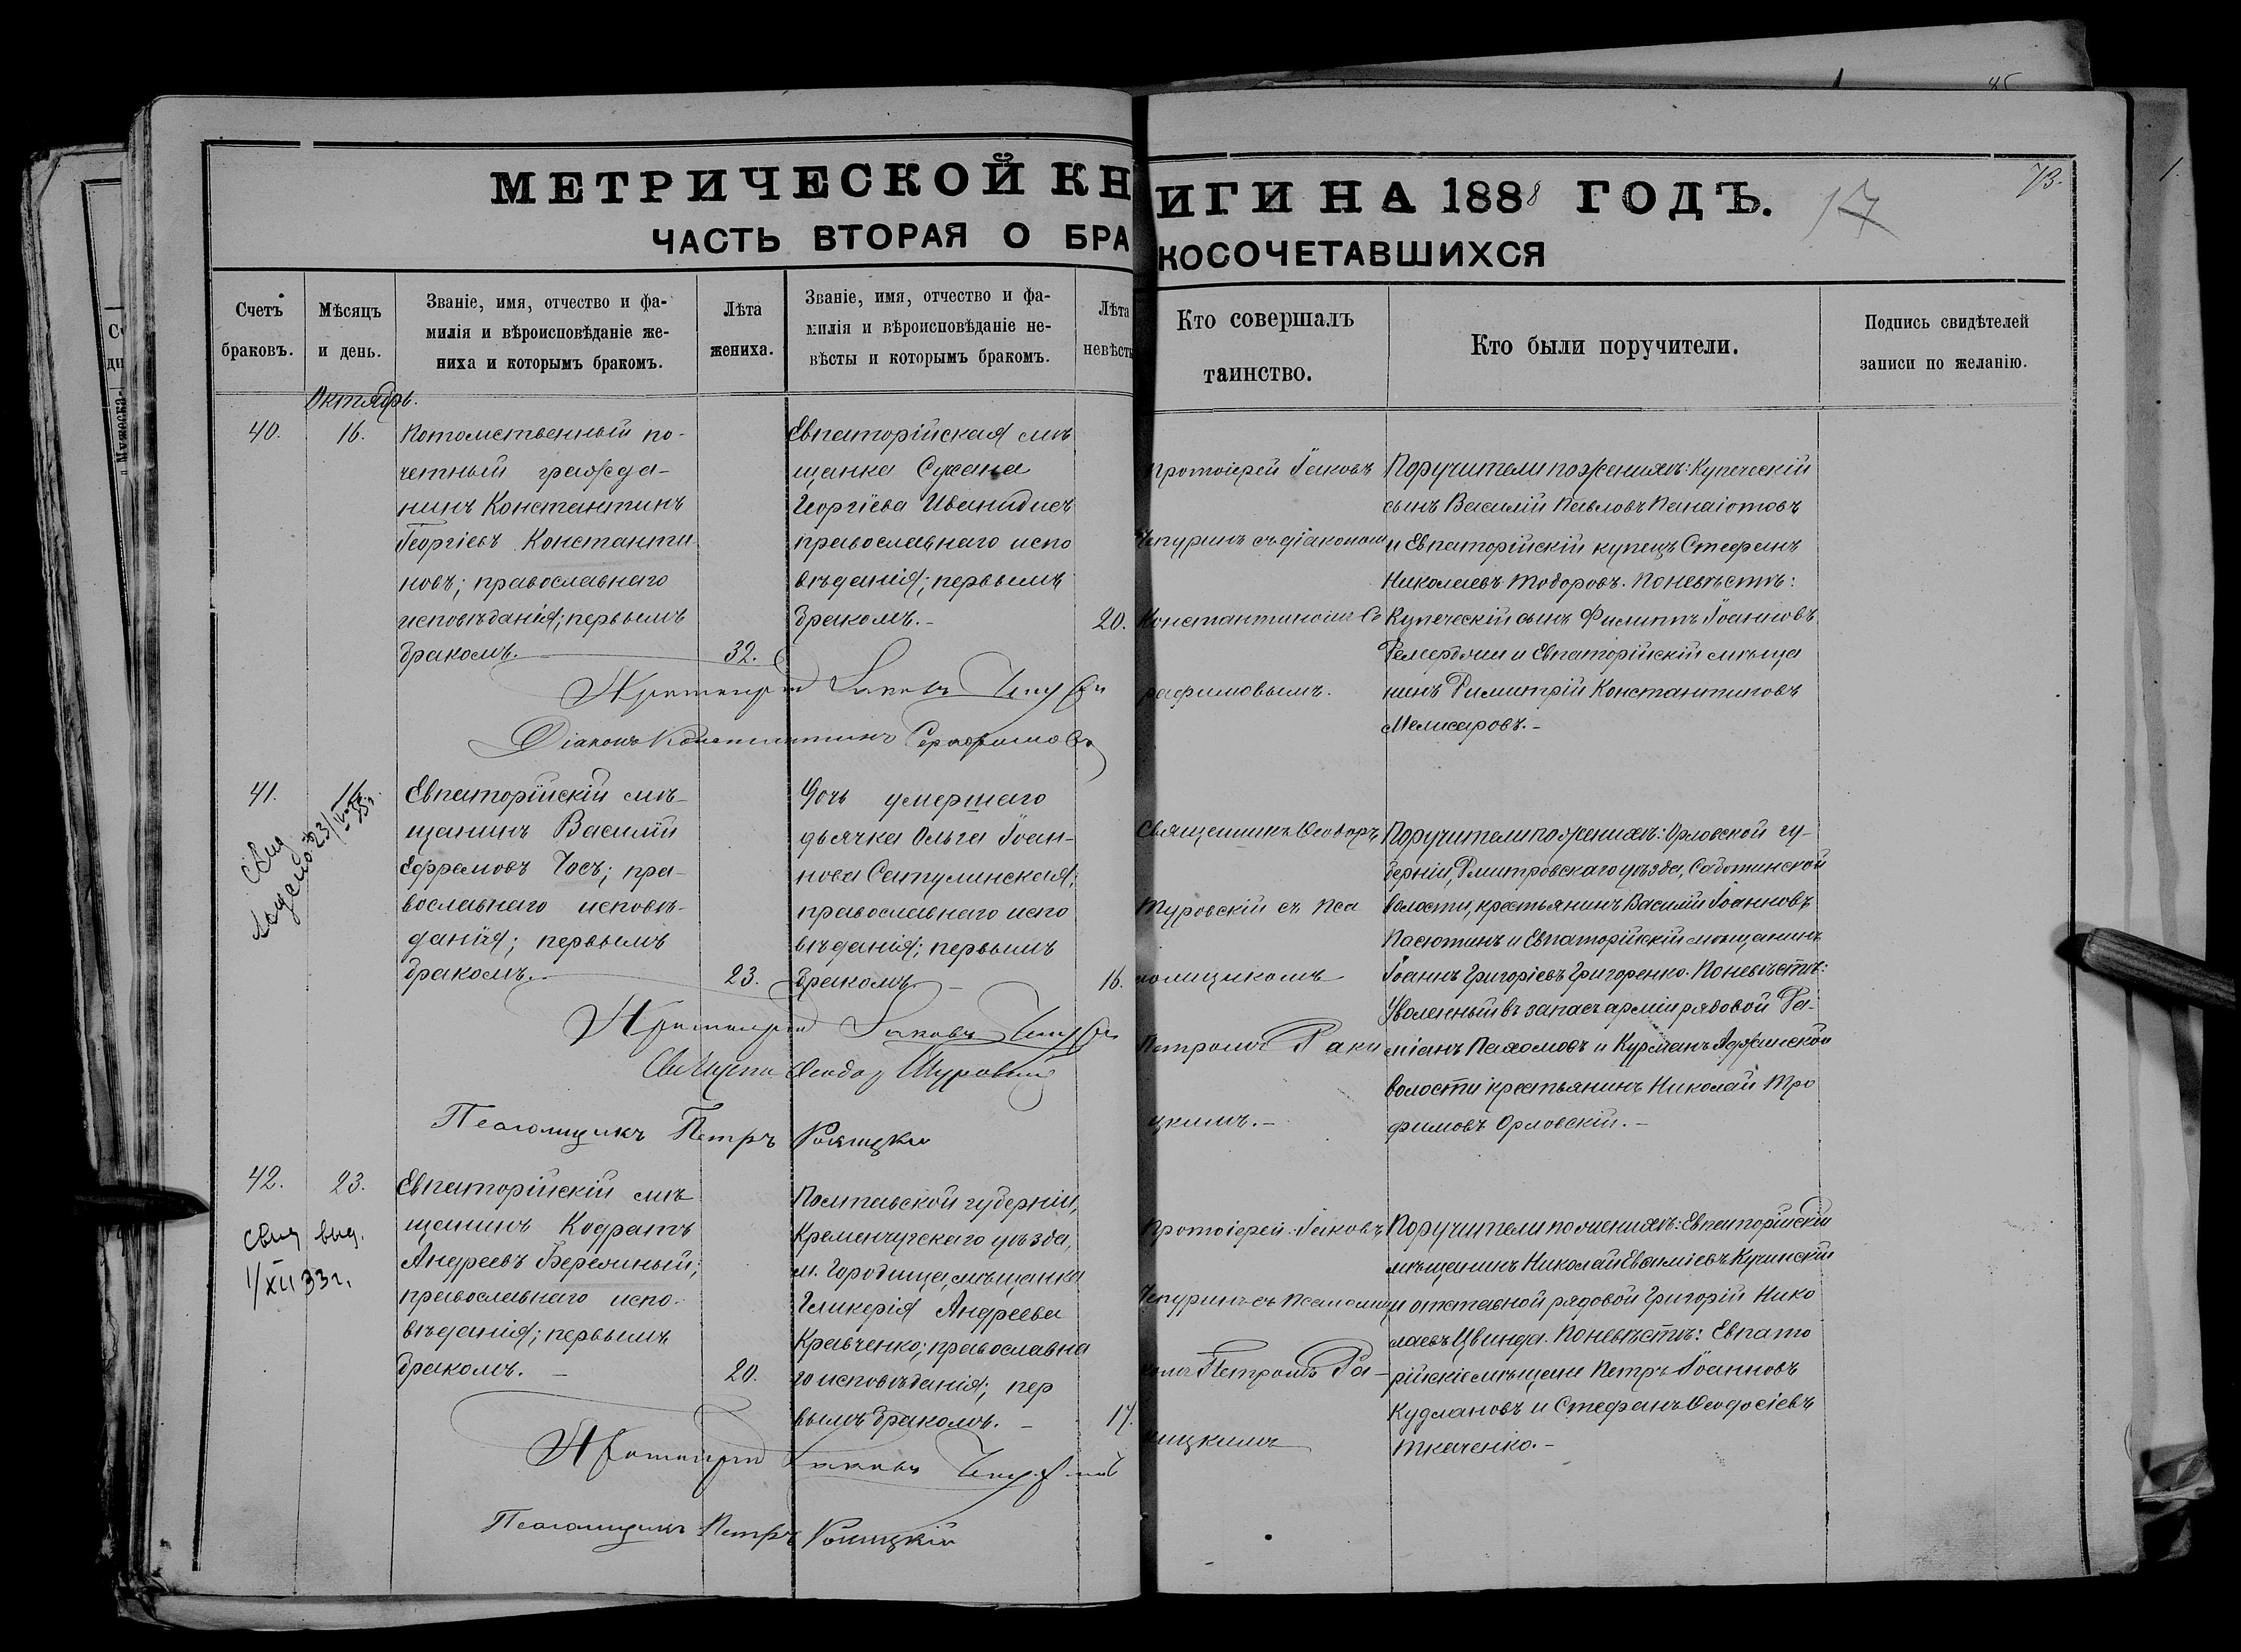 МЕТРИЧЕСКОЙ КНИГИ НА 1888 ГОДЪ.
17
73.
ЧАСТЬ ВТОРАЯ О БРАКОСОЧЕТАВШИХСЯ
Счетъ
браковъ.
Мѣсяцъ
и день.
Званіе, имя, отчество и фа-
милія и вѣроисповѣданіе же-
ниха и которымъ бракомъ.
Лѣта
жениха.
Званіе, имя, отчество и фа-
милія и вѣроисповѣданіе не-
вѣсты и которымъ бракомъ.
Лѣта
невѣсты
Кто совершалъ
таинство.
Кто были поручители.
Подпись свидѣтелей
записи по желанію.
Октябрь.
40.
16.
Потомственный по-
четный гражда-
нинъ Константинъ
Георгіевъ Константи
новъ; православнаго
исповѣданія; первымъ
бракомъ.
32.
Евпаторійская мѣ
щанка Сусана
Георгіева Иванидисъ
православнаго испо
вѣданія; первымъ
бракомъ.-
20.
Протоіерей Іаковъ
Чепуринъ съ діакономъ
Константиномъ Се
рафимовымъ.
Поручители по женихѣ: Купеческій
сынъ Василій Павловъ Панаіотовъ
и Евпаторійскій купецъ Стефанъ
Николаевъ Тодоровъ. По невѣстѣ:
Купеческій сынъ Филиппъ Іоанновъ
и Евпаторійскій мѣща
нинъ Димитрій Константиновъ
Мелисаровъ.-
Протоіерей Іаковъ Чепуринъ
Діаконъ Константинъ Серафимовъ
41.
16.
Свид
выдано 23/
Евпаторійскій мѣ-
щанинъ Василій
Ефремовъ Чосъ; пра-
вославнаго исповѣ-
данія; первымъ
бракомъ.
23.
Дочь умершаго
дьячка Ольга Іоан-
нова Сатулинская;
православнаго испо
вѣданія; первымъ
бракомъ. -
16.
Священникъ Ѳеодоръ
Туровскій съ Пса
ломщикомъ
Петромъ
цкимъ.-
Поручители по женихѣ: Орловской гу-
берніи, Дмитровскаго уѣзда,
волости, крестьянинъ Василій Іоанновъ
Пасютинъ и Евпаторійскій мѣщанинъ
Іоаннъ Григоріевъ Григоренко. По невѣстѣ:
Уволенный въ запасъ арміи рядовой Да-
міанъ Пахомовъ и Курманъ Аджинской
волости крестьянинъ Николай Тро
фимовъ Орловскій.-
Протоіерей Іаковъ Чепуринъ
Священникъ Ѳеодоръ Туровскій
Псаломщикъ Петръ
42.
23.
Свид выд.
1/XII 33 г.
Евпаторійскій мѣ
щанинъ Кодратъ
Андреевъ
православнаго испо-
вѣданія; первымъ
бракомъ. -
20.
Полтавской губерніи,
Кременчугскаго уѣзда,
м. Городища, мѣщанка
Гликерія Андреева
Кравченко; православна
го исповѣданія; пер
вымъ бракомъ. -
17.
Протоіерей Іаковъ
Чепуринъ съ Псаломщи
комъ Петромъ
Поручители по женихѣ: Евпаторійскій
мѣщанинъ Николай Евфиміевъ Кучинскій
и отставной рядовой Григорій Нико
лаевъ Цвинда. По невѣстѣ: Евпато
рійскіе мѣщане Петръ Іоанновъ
Кудлановъ и Стефанъ Ѳеодосіевъ
Ткаченко.-
Протоіерей Іаковъ Чепуринъ
Псаломщикъ Петръ